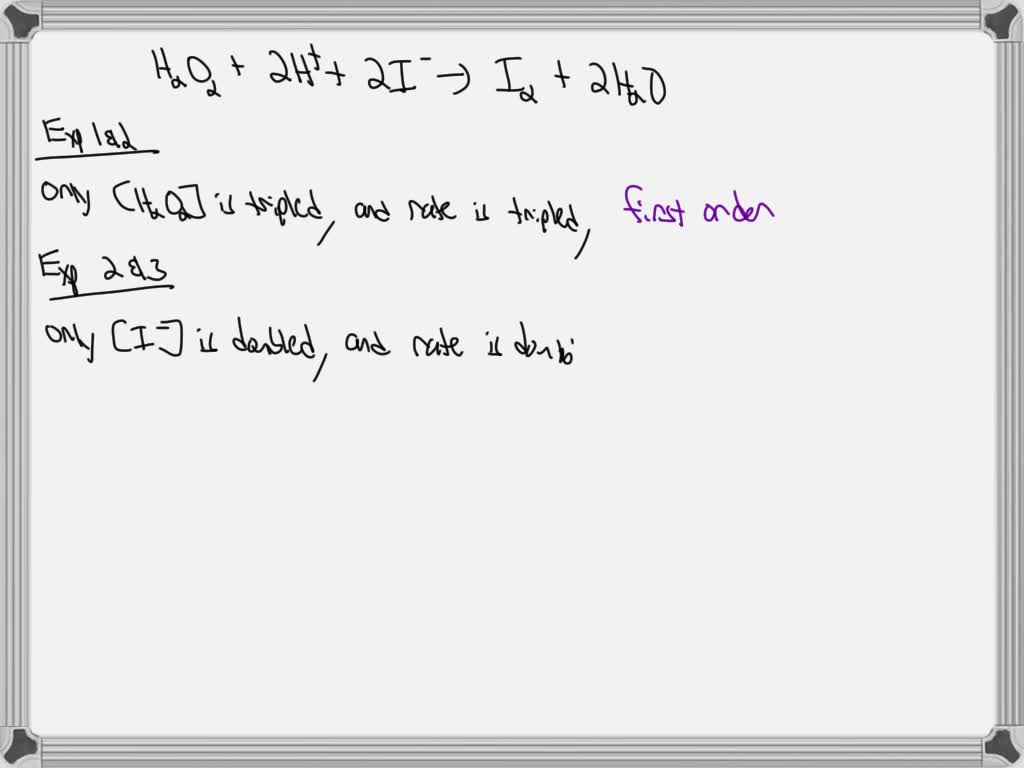 H₂O₂ + 2H⁺ + 2I⁻ → I₂ + 2H₂O
Exp 1&2
only [H₂O₂] is tripled, and rate is tripled, first order
Exp 2&3
only [I⁻] is doubled, and rate is doub